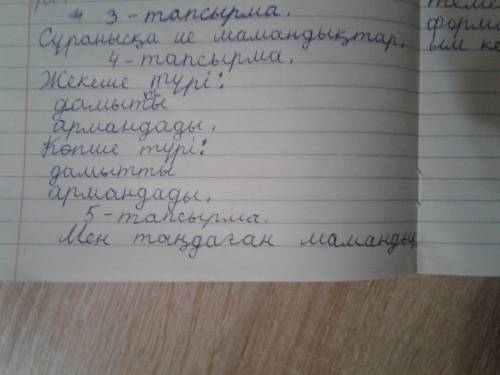 3-тапсырма.
Сұранысқа ие мамандықтар.
4-тапсырма.
Жекеше түрі:
дамыты
армандады.
Көпше түрі:
дамытты
армандады.
5-тапсырма.
Мен таңдаған мамандық
форма